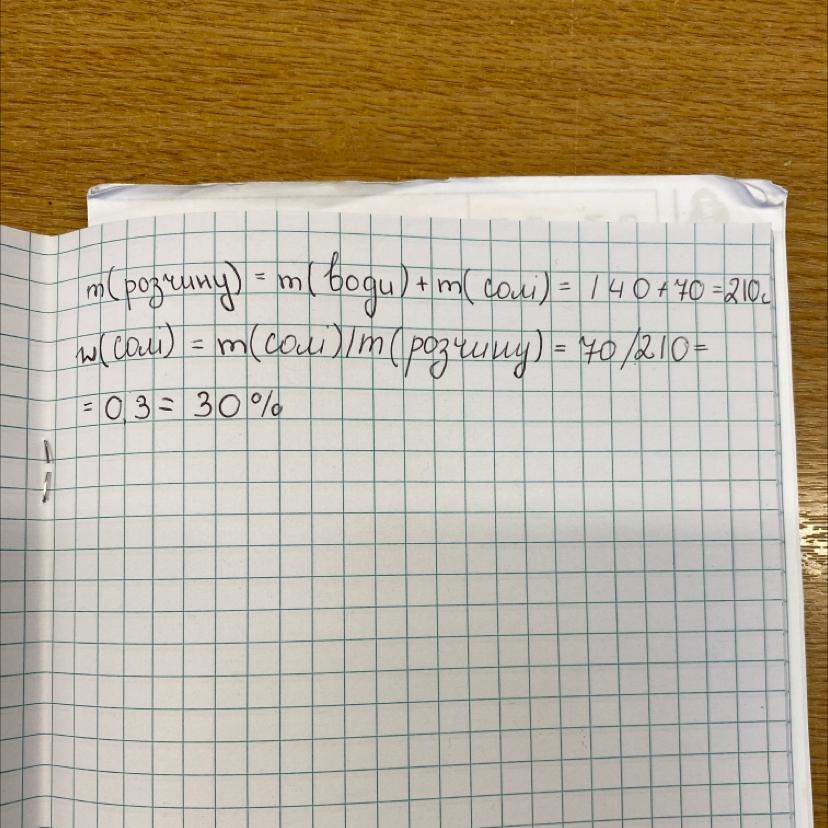 m(розчину) = m(води) + m(солі) = 140 + 70 = 210г
w(солі) = m(солі)/m(розчину) = 70/210 =
= 0,3 = 30%